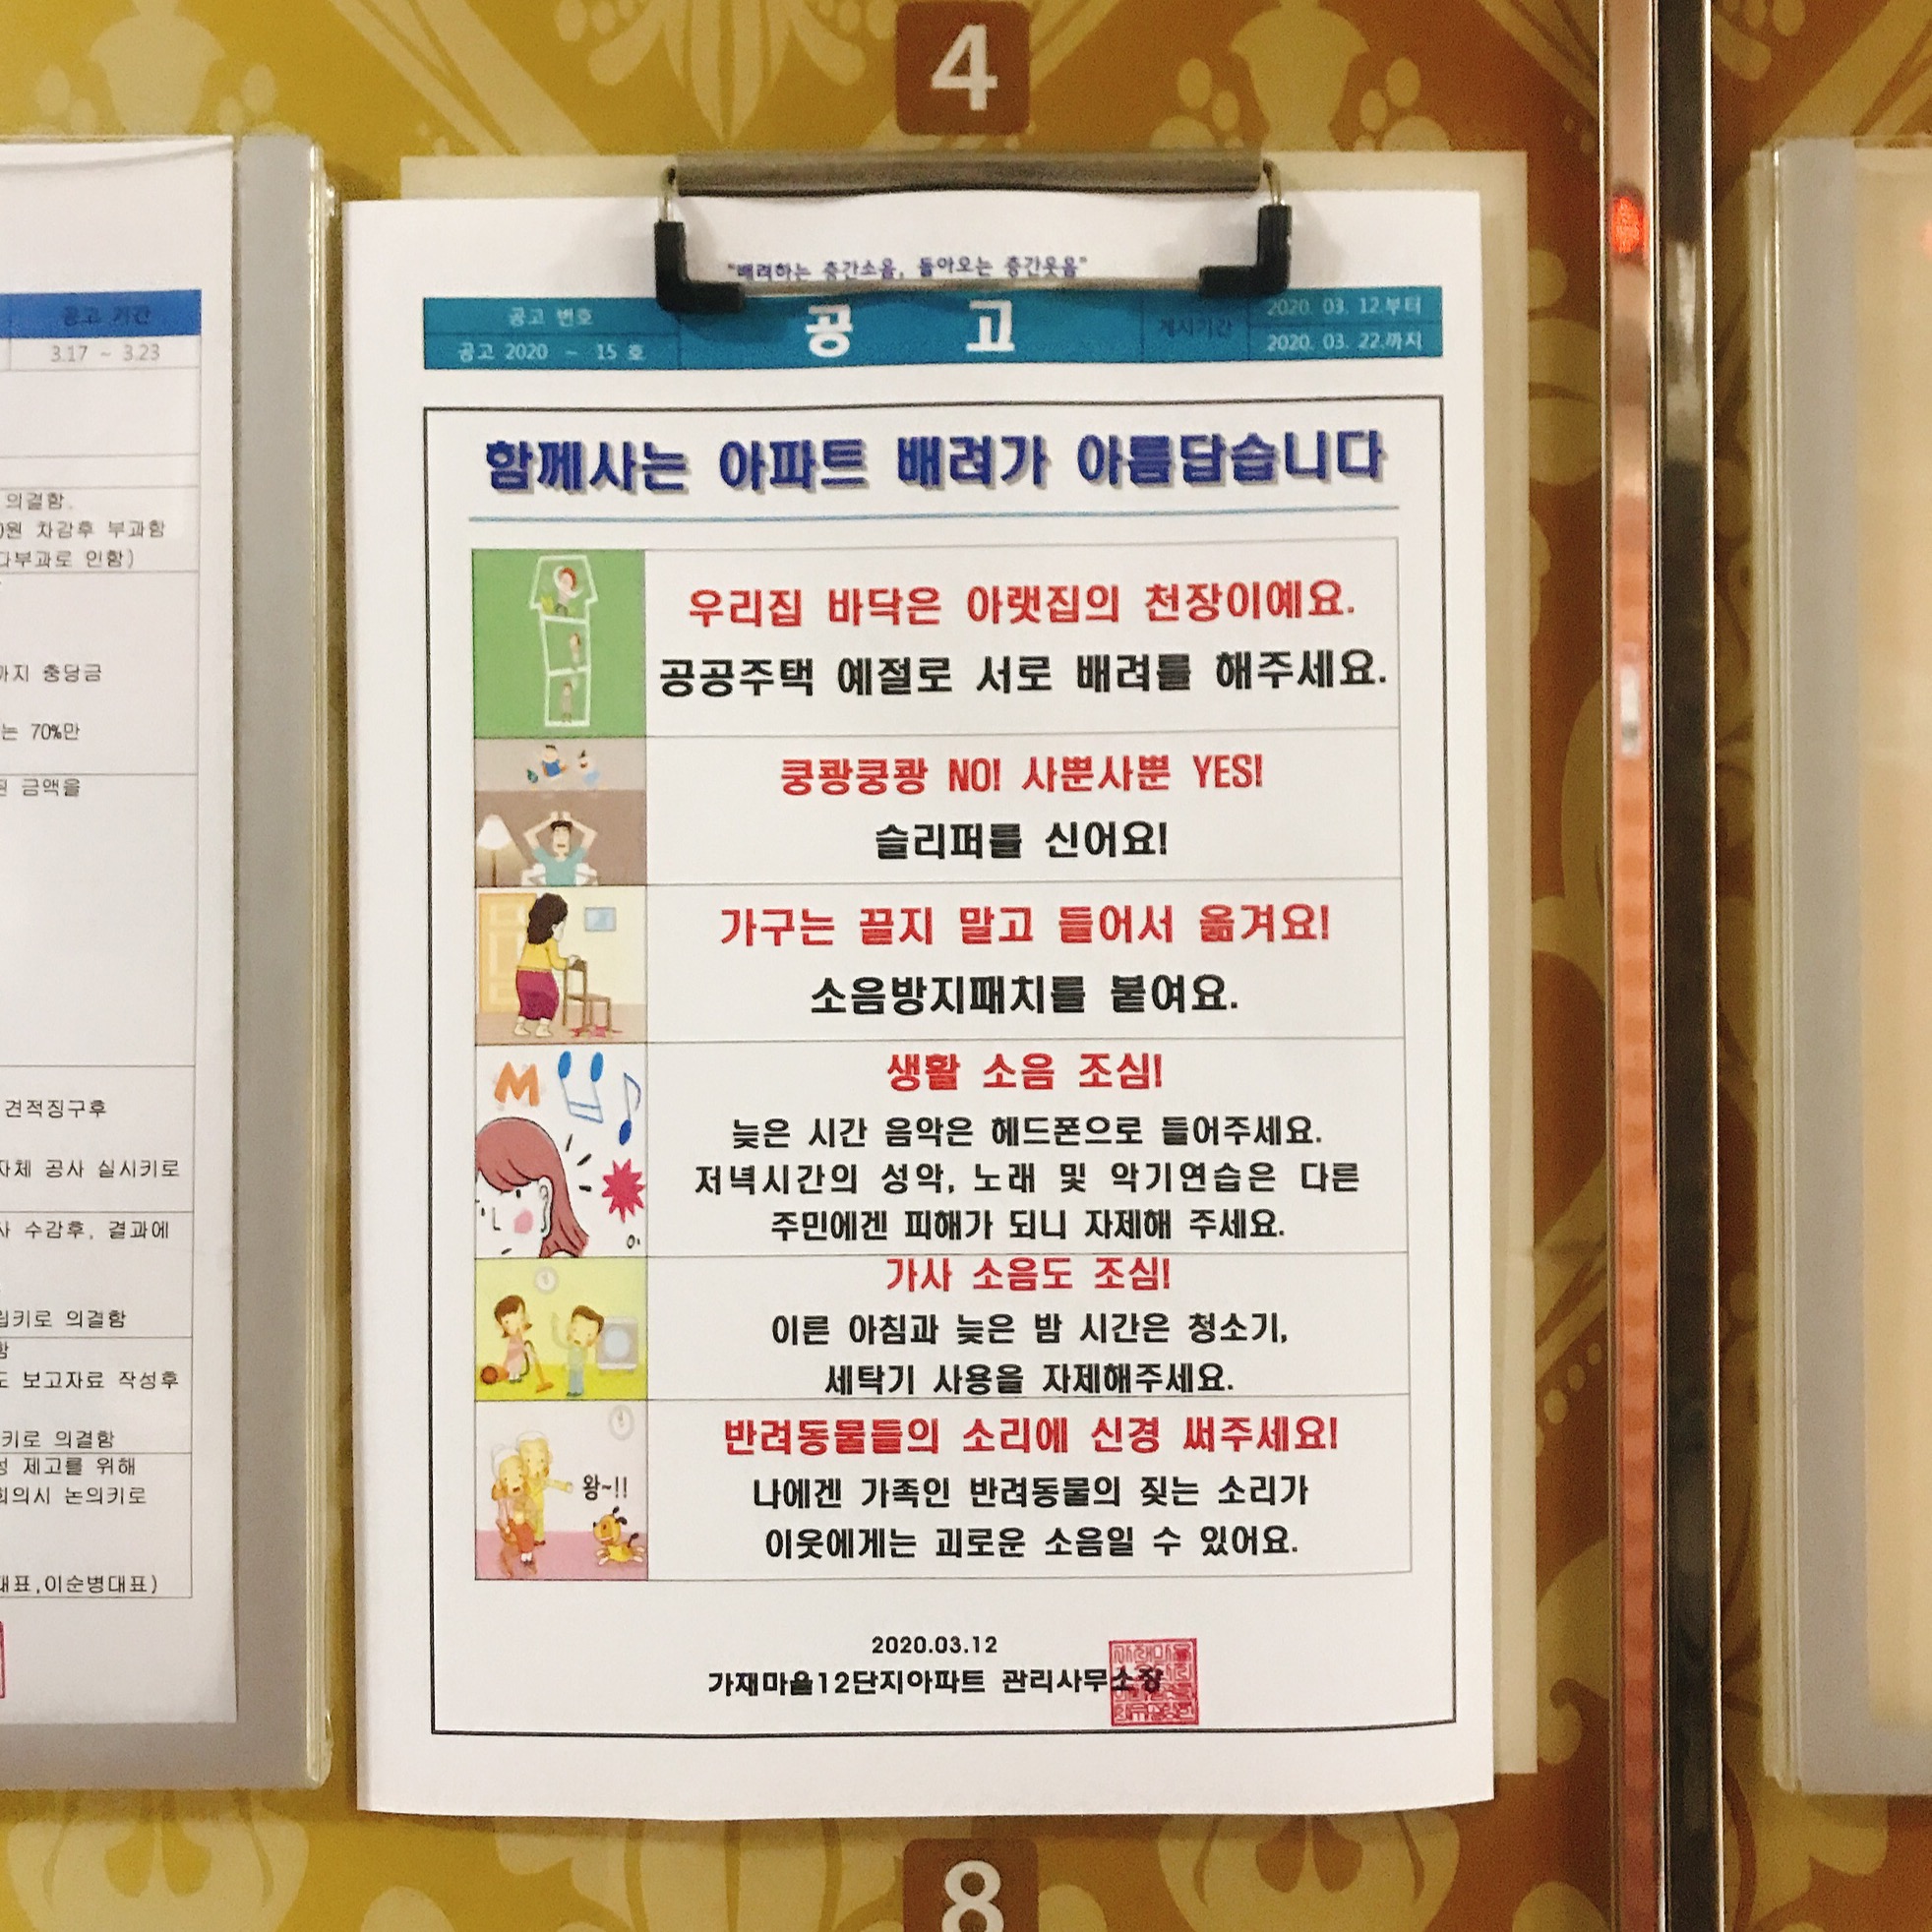 4
공고 기간
3.17 ~ 3.23
의결함.
0원 차감후 부과함
다부과로 인함)
까지 충당금
는 70%만
금액을
견적징구후
자체 공사 실시키로
수감후, 결과에
립키로 의결함
함
도 보고자료 작성후
키로 의결함
성 제고를 위해
회의시 논의키로
대표,이순병대표)
"배려하는 층간소음, 돌아오는 층간웃음"
공고 번호
공고 2020 - 15 호
공 고
게시기간
2020. 03. 12.부터
2020. 03. 22.까지
함께사는 아파트 배려가 아름답습니다
우리집 바닥은 아랫집의 천장이예요.
공공주택 예절로 서로 배려를 해주세요.
쿵쾅쿵쾅 NO! 사뿐사뿐 YES!
슬리퍼를 신어요!
가구는 끌지 말고 들어서 옮겨요!
소음방지패치를 붙여요.
M
생활 소음 조심!
늦은 시간 음악은 헤드폰으로 들어주세요.
저녁시간의 성악, 노래 및 악기연습은 다른
주민에겐 피해가 되니 자제해 주세요.
가사 소음도 조심!
이른 아침과 늦은 밤 시간은 청소기,
세탁기 사용을 자제해주세요.
왕~!!
반려동물들의 소리에 신경 써주세요!
나에겐 가족인 반려동물의 짖는 소리가
이웃에게는 괴로운 소음일 수 있어요.
2020.03.12
가재마을12단지아파트 관리사무소장
8